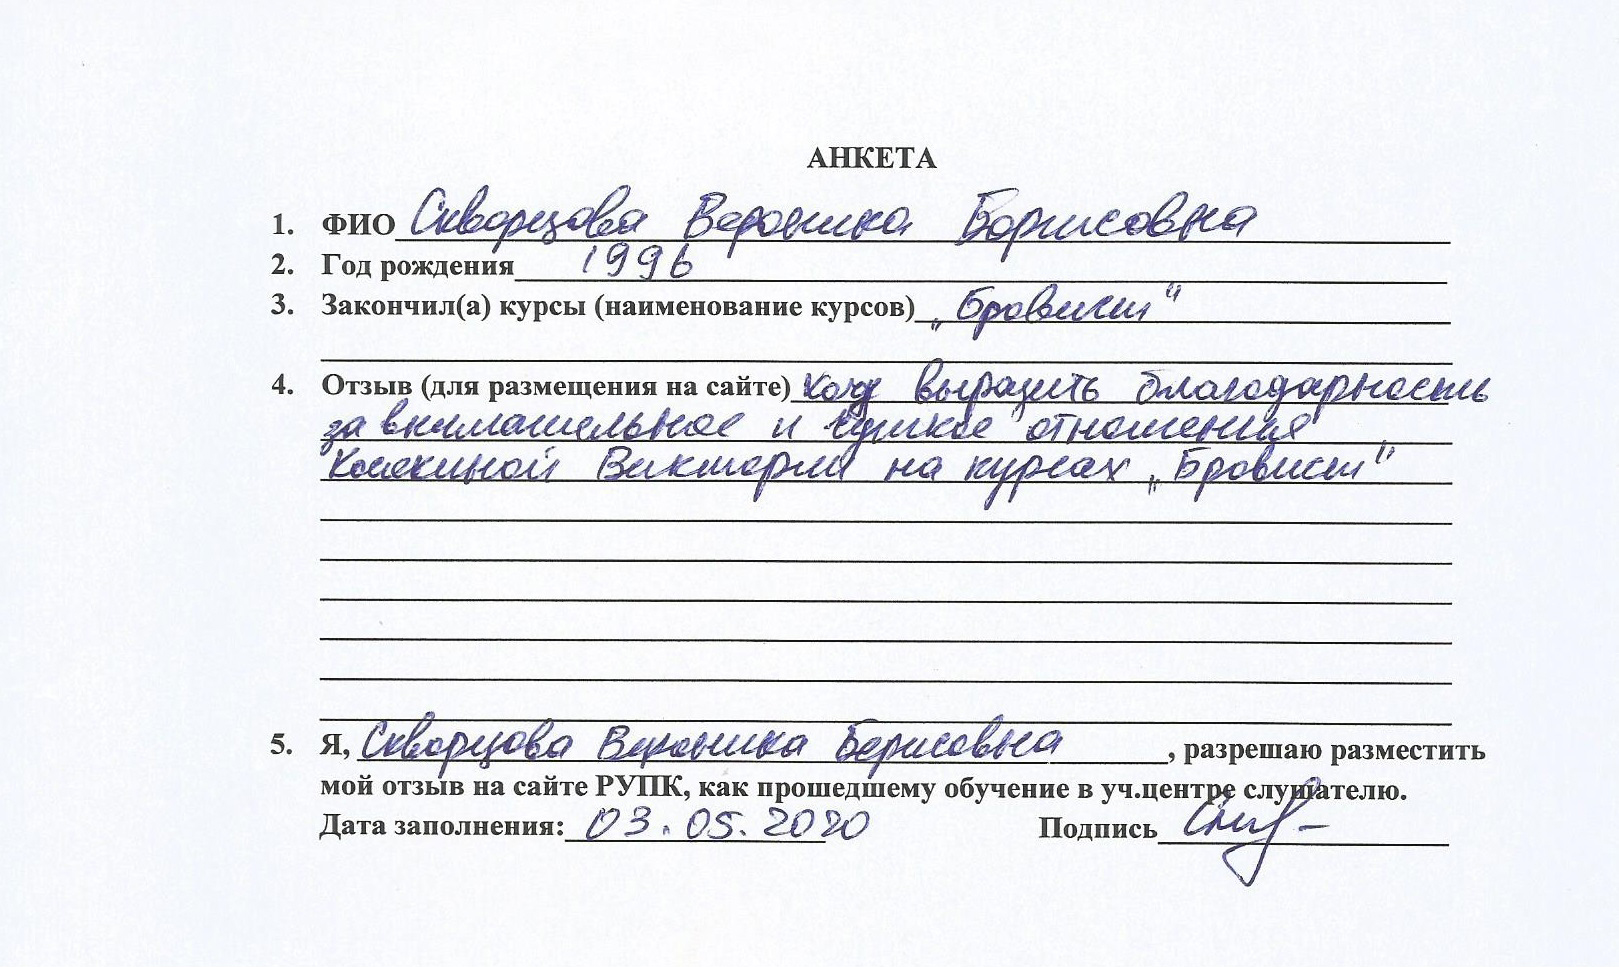 АНКЕТА
1. ФИО Скворцова Вероника Борисовна
2. Год рождения 1996
3. Закончил(а) курсы (наименование курсов) „Бровист"
4. Отзыв (для размещения на сайте) Хочу выразить благодарность
за внимательное и чуткое отношения
Викторий на курсах „Бровист"
5. Я, Скворцова Вероника Борисовна, разрешаю разместить
мой отзыв на сайте РУПК, как прошедшему обучение в уч.центре слушателю.
Дата заполнения: 03.05.2020 Подпись